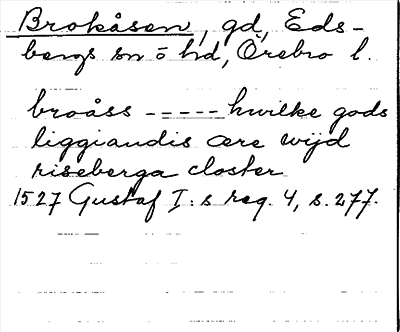 Brokåsen, gd, Eds-
bergs sn o hd, Örebro l.
broåss ----- hwilke gods
liggiandis ære wijd
riseberga closter
1527 Gustaf I:s reg. 4, s. 277.